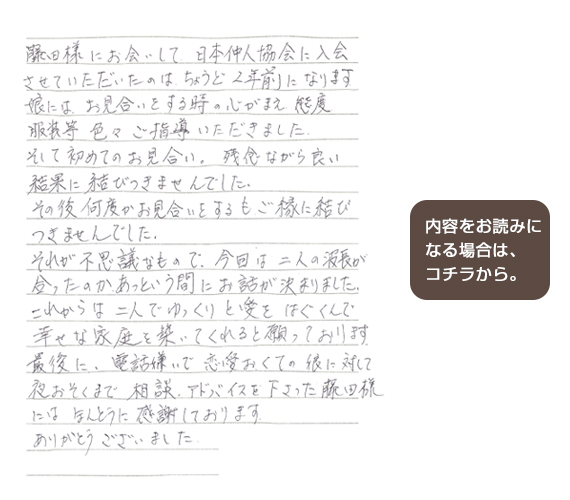 藤田様にお会いして 日本仲人協会に入会
させていただいたのは ちょうど 2年前になります
娘には、お見合いをする時の心がまえ 態度
服装等 色々 ご指導いただきました。
そして初めてのお見合い。 残念ながら良い
結果に結びつきませんでした。
その後 何度かお見合いをするもご縁に結び
つきませんでした。
それが不思議なもので、今回は 二人の波長が
合ったのかあっという間にお話が決まりました。
これからは 二人でゆっくりと愛をはぐくんで
幸せな家庭を築いてくれると願っております
最後に、電話嫌いで 恋愛おくての娘に対して
夜おそくまで 相談、アドバイスを下さった藤田様
には ほんとうに感謝しております。
ありがとうございました。
内容をお読みに
なる場合は、
コチラから。